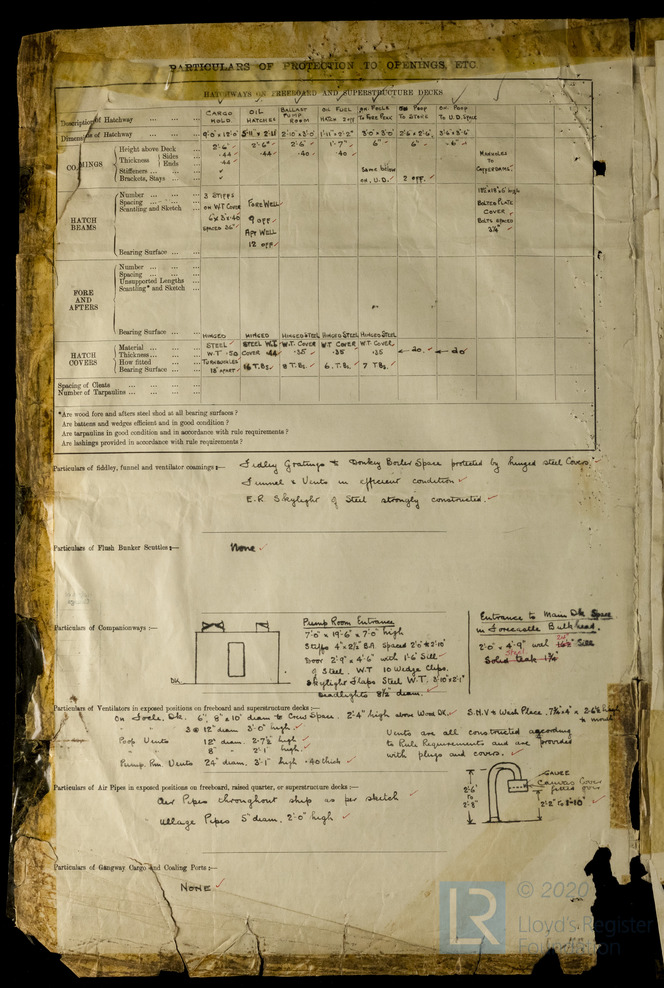 PARTICULARS OF PROTECTION TO OPENINGS, ETC.
HATCHWAYS ON FREEBOARD AND SUPERSTRUCTURE DECKS
Description of Hatchway CARGO HOLD. OIL HATCHES BALLAST PUMP ROOM OIL FUEL HATCH To Fore Peak Poop To Store On Poop To U.D. Space
Dimensions of Hatchway 9'.0" x 12'.0" 2'.10" x 3'.0" 1'.11" x 2'.2" 3'.0 x 3'.0" 2'.6 x 2'.6" 3'.6 x 3'.6"
COAMINGS
Height above Deck 2'.6" 2'.6" 2'.6" 1'.7" 6" 6" 6"
Thickness Sides .44 .44 .40 .40
Ends .44
Stiffeners
Brackets, Stays Same below on U.D. 2 off.
MANHOLES TO COFFERDAMS.
HATCH BEAMS
Number 3 STIFFS
Spacing ON W.T COVER FORE WELL
Scantling and Sketch 6 x 3 x .40 9 OFF
SPACED 26" AFT WELL
12 OFF
BOLTED PLATE
COVER
BOLTS SPACED
3¼"
Bearing Surface
FORE AND AFTERS
Number
Spacing
Unsupported Lengths
Scantling* and Sketch
Bearing Surface
HATCH COVERS
HINGED HINGED HINGED STEEL HINGED STEEL HINGED STEEL
Material STEEL STEEL W.T. W.T. COVER W.T COVER W.T. COVER
Thickness W.T .50 COVER .44 .35 .35 .35 do. do
How fitted TURNBUCKLES
Bearing Surface 18" APART 16 T.Bs. 8 T.Bs. 6. T.Bs. 7 T.Bs.
Spacing of Cleats
Number of Tarpaulins
*Are wood fore and afters steel shod at all bearing surfaces ?
Are battens and wedges efficient and in good condition ?
Are tarpaulins in good condition and in accordance with rule requirements ?
Are lashings provided in accordance with rule requirements ?
Particulars of fiddley, funnel and ventilator coamings :— Fidley Gratings & Donkey Boiler Space protected by hinged steel Covers.
Funnel & Vents in efficient condition
E.R. Skylight of Steel strongly constructed.
Particulars of Flush Bunker Scuttles :— None
Particulars of Companionways :—
DK.
Pump Room Entrance
7'.0" x 19'.6" x 7'.0" high
Stiffs 4" x 2½" B.A. spaced 2'.0" & 2'.10"
Door 2'.9" x 4'.6" with 1'.6" Sill
of Steel. W.T 10 Wedge Clips.
Skylight Flaps Steel W.T. 3'.10" x 2'.1"
Deadlights 8½" diam.
Entrance to Main Dk Space
in Forecastle Bulkhead.
2'.0" x 4'.9" with Sill
Solid Teak 1¾"
Particulars of Ventilators in exposed positions on freeboard and superstructure decks :—
On Focle. Dk. 6", 8" x 10" diam to Crew Space. 2'.4" high above Wood Dk. S.N.V to Wash Place. 7¾" x 4" x 2'.6½ high
3 @ 12" diam 3'.0" high.
Poop Vents 12" diam. 2'.7½" high
" " 8" " 2'.1" high.
Pump. Rm. Vents 24" diam. 3'.1" high .40 thick
Vents are all constructed according
to Rule Requirements and are provided
with plugs and covers.
Particulars of Air Pipes in exposed positions on freeboard, raised quarter, or superstructure decks :—
Air Pipes throughout ship as per sketch
Ullage Pipes 5" diam. 2'.0" high
GAUZE
Canvas Cover
fitted over
2'.6"
TO
2'.8"
2'.2" To 3'.10"
Particulars of Gangway Cargo and Coaling Ports :—
NONE
LR © 2020
Lloyd's Register
Foundation